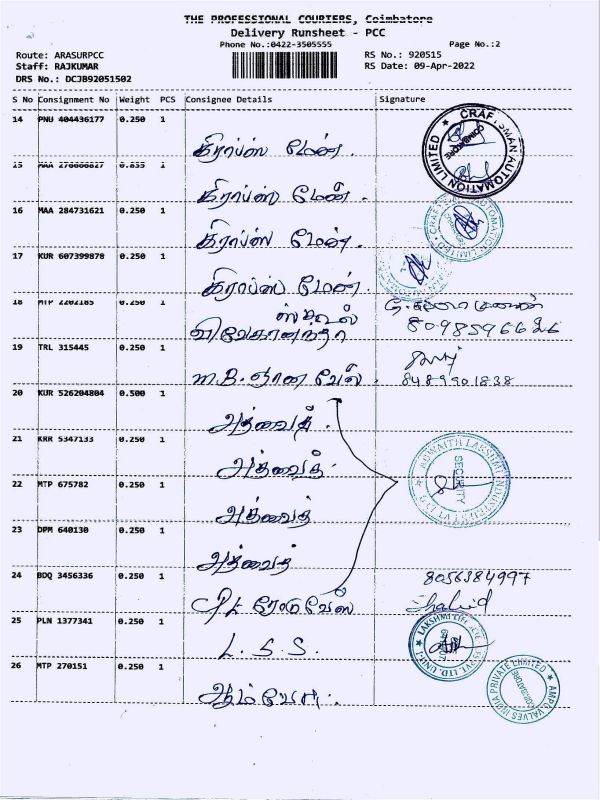 THE PROFESSIONAL COURIERS, Coimbatore
Delivery Runsheet - PCC
Phone No.:0422-3505555
Page No.:2
Route: ARASURPCC
RS No.: 920515
Staff: RAJKUMAR
RS Date: 09-Apr-2022
DRS No.: DCJB92051502
S No Consignment No Weight PCS Consignee Details Signature
14 PNU 404436177 0.250 1
கிராப்ஸ் மேன்.
15 MAA 0.855 1
கிராப்ஸ் மேன்.
16 MAA 284731621 0.250 1
கிராப்ஸ் மேன்.
17 KUR 607399878 0.250 1
கிராப்ஸ் மேன்.
18 MTP 2202185 0.250 1
ஸ்கூல்
விவேகானந்தா
19 TRL 315445 0.250 1
M.B. ஞானவேல்.
8489901838
20 KUR 526204804 0.500 1
அத்வைத்.
21 KRR 5347133 0.250 1
அத்வைத்
22 MTP 675782 0.250 1
அத்வைத்
23 DPM 640130 0.250 1
அத்வைத்
24 BDQ 3456336 0.250 1
8056384997
ரோடுவேஸ்
25 PLN 1377341 0.250 1
L.S.S.
26 MTP 270151 0.250 1
CRAFTSMAN AUTOMATION LIMITED ★ COIMBATORE
ADWAITH LAKSHMI INDUSTRIES PVT LTD
SECURITY
AMPO VALVES INDIA PRIVATE LIMITED
COIMBATORE